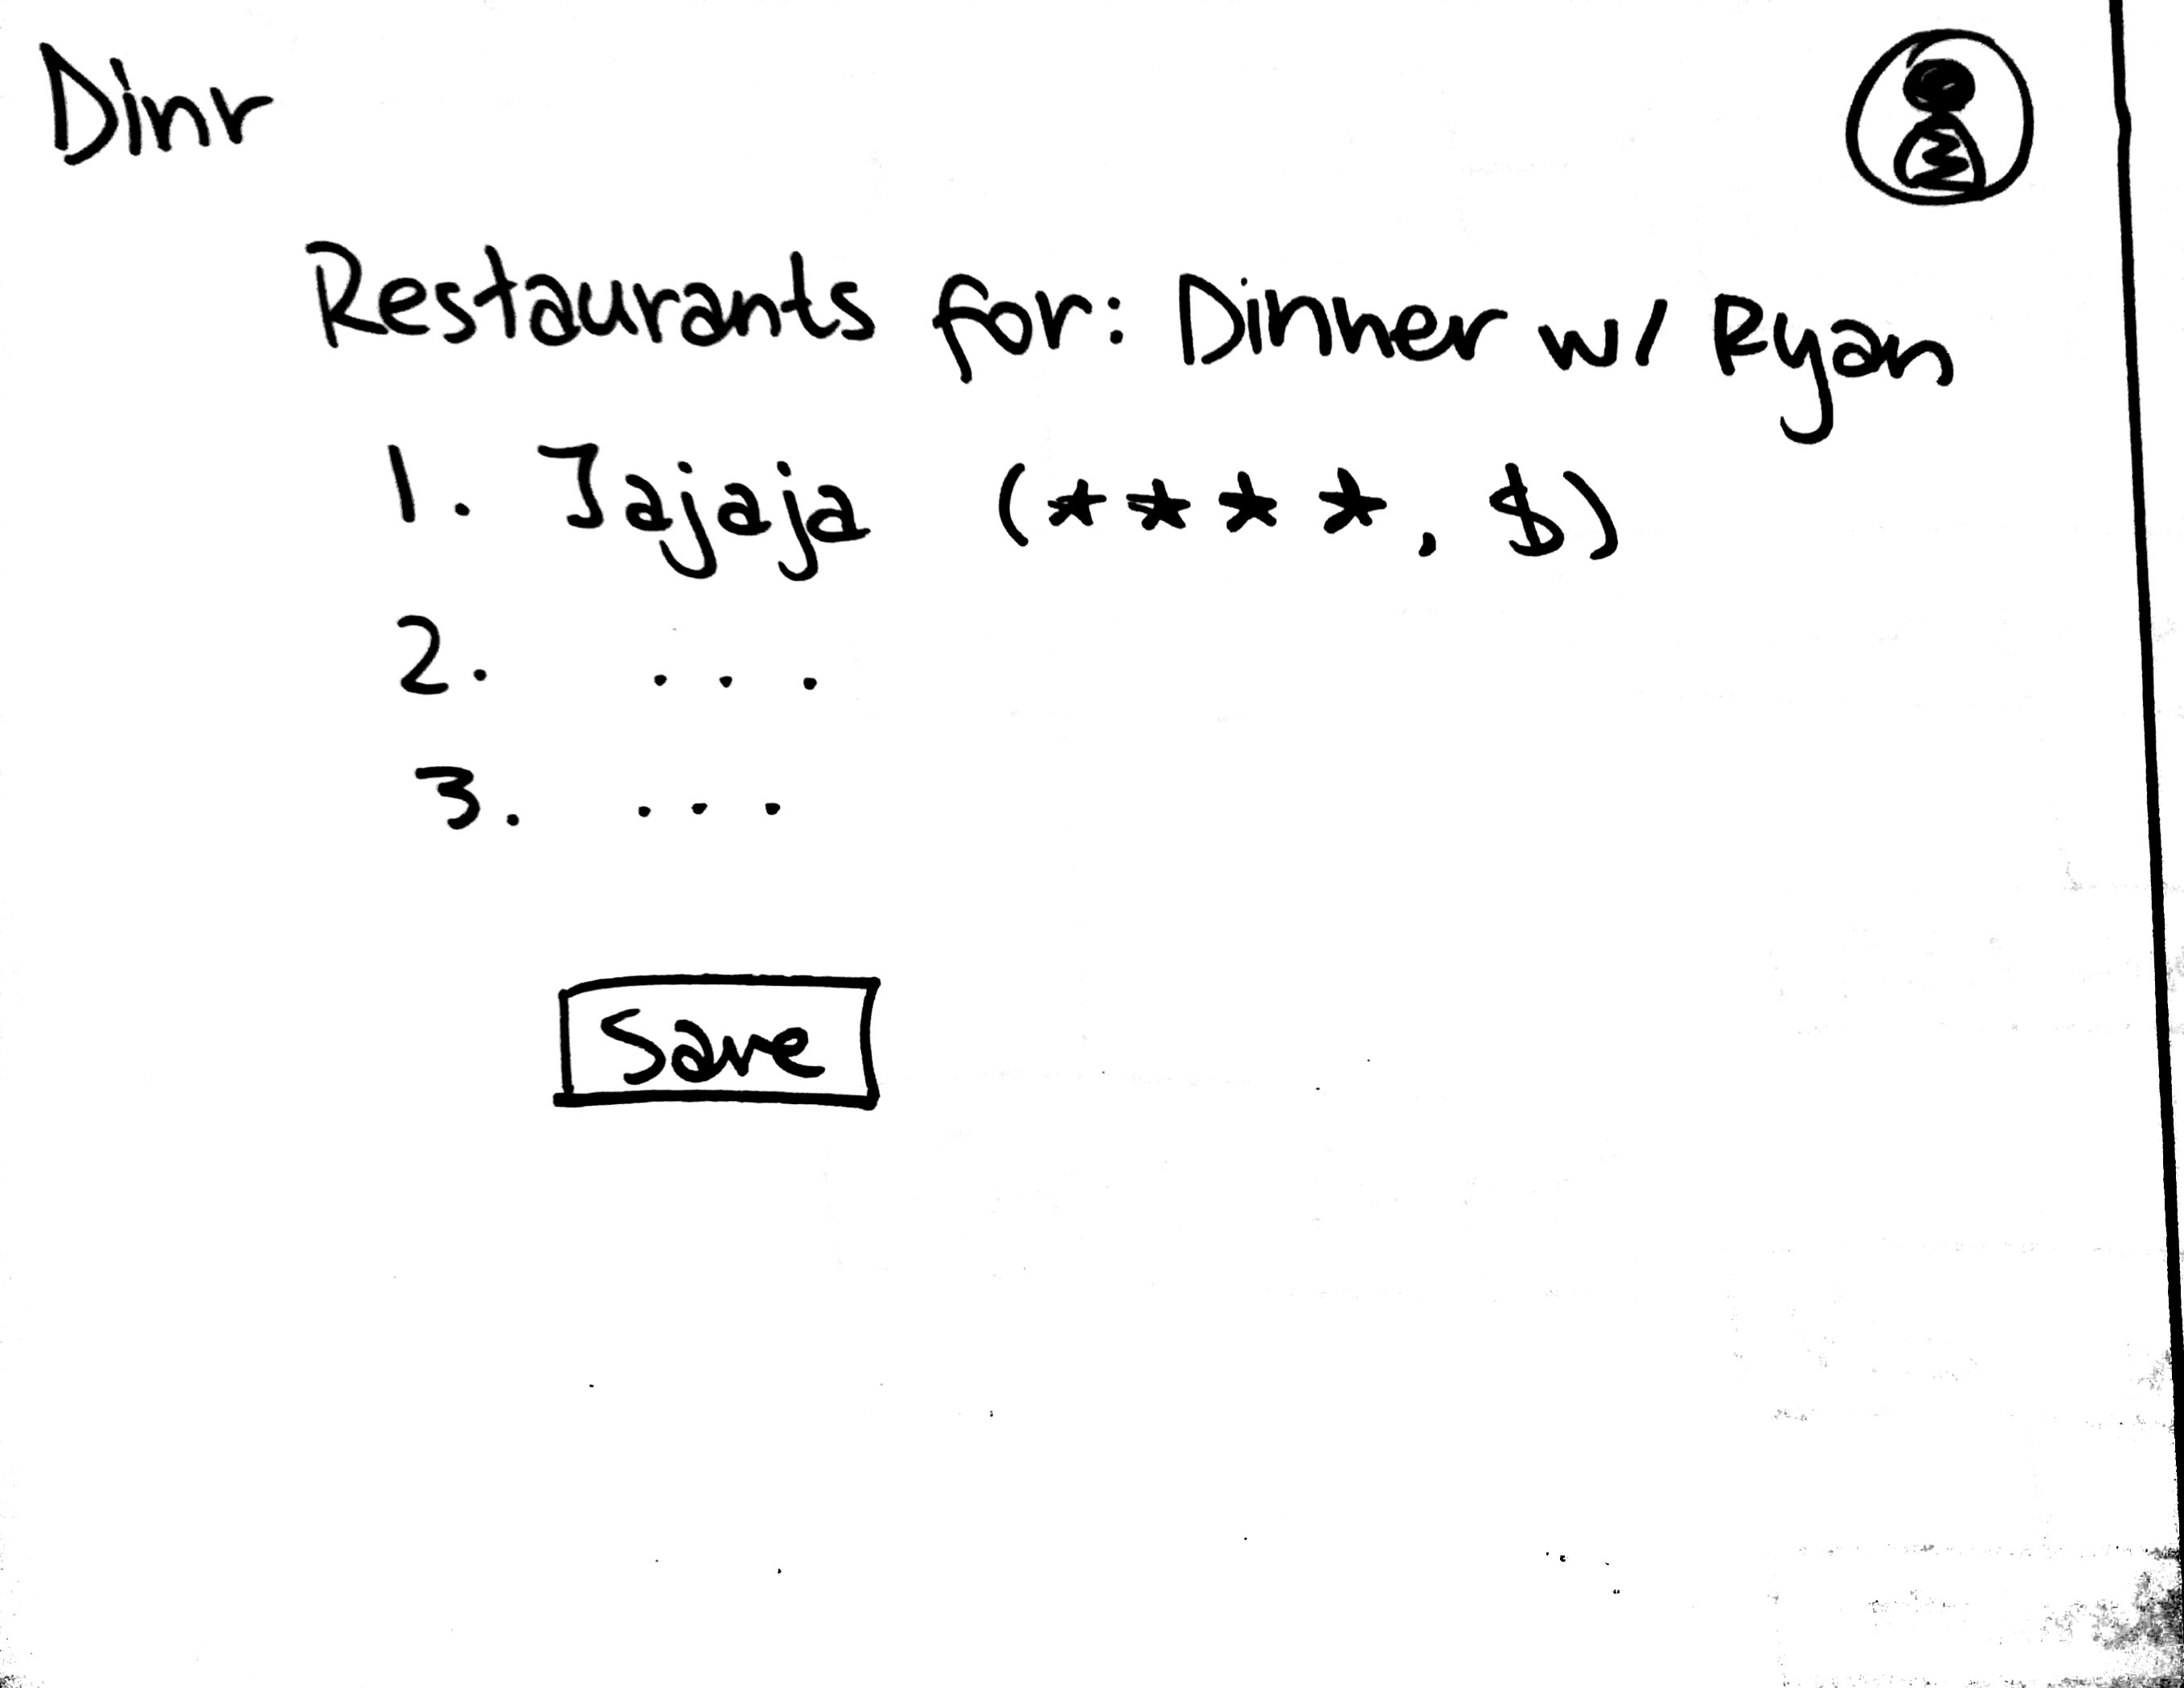 Dinr
Restaurants for: Dinner w/ Ryan
1. Jajaja (****, $)
2. ...
3. ...
Save